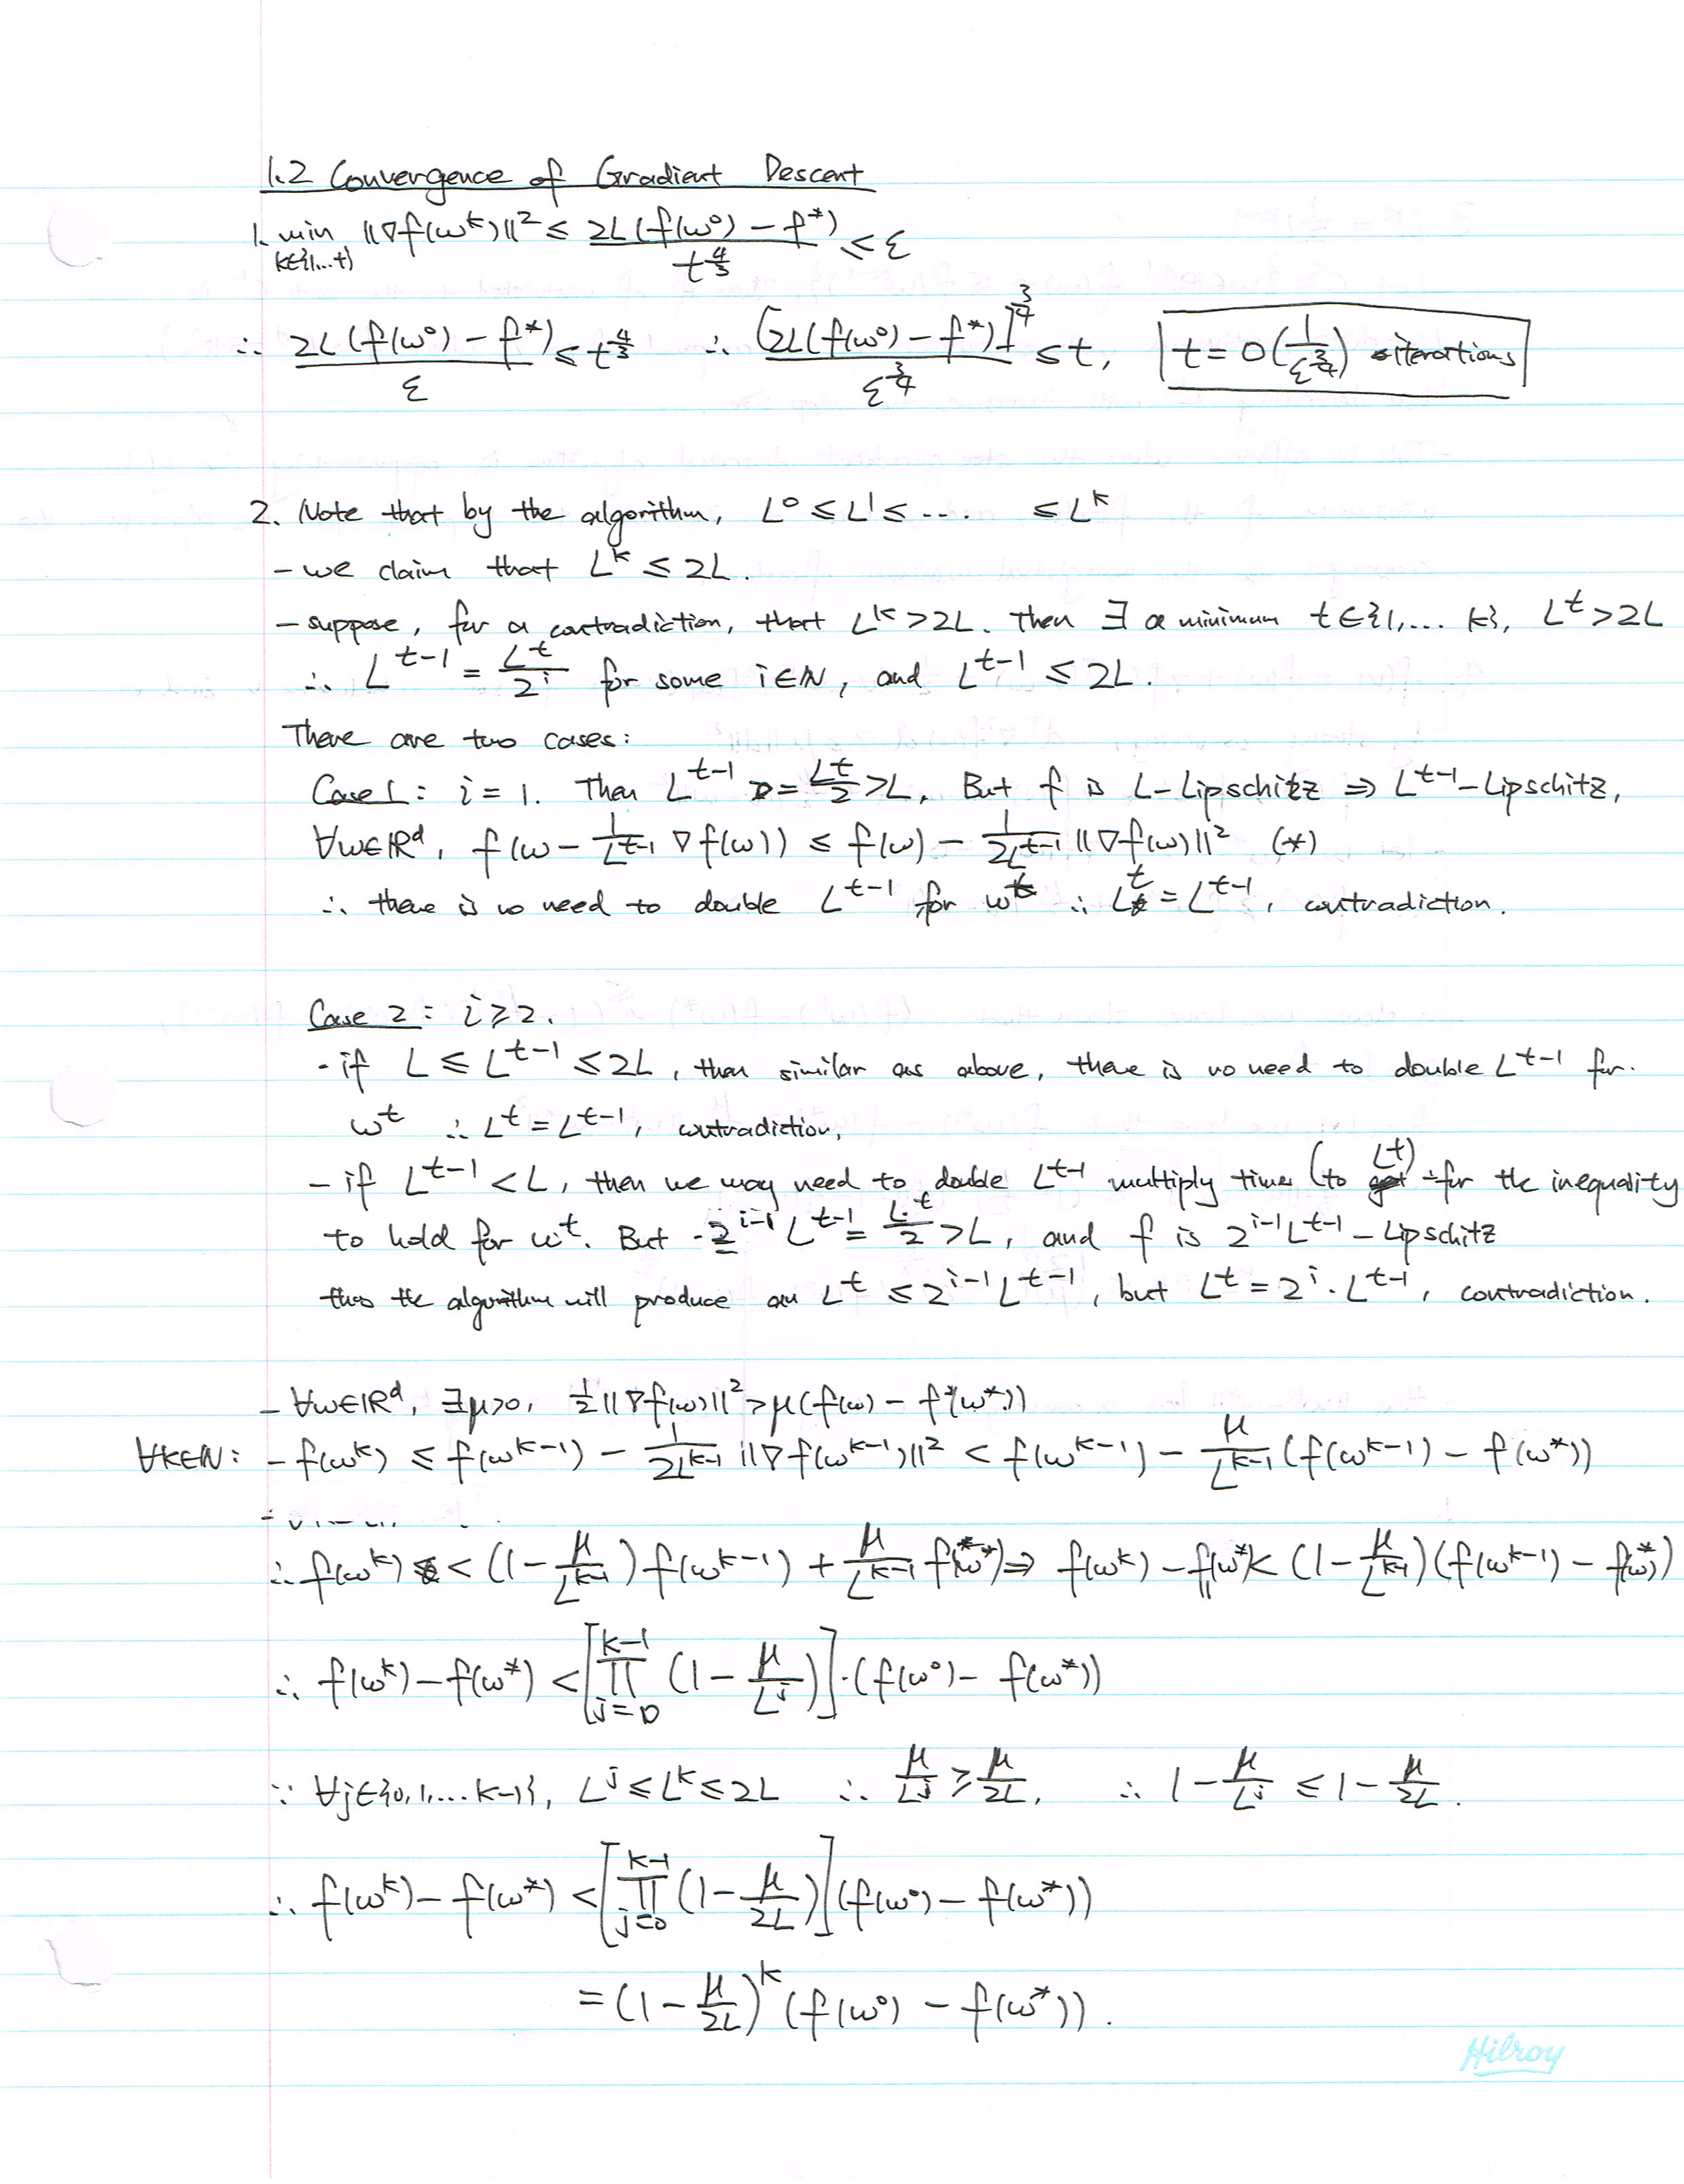 1.2 Convergence of Gradient Descent
1. min_{k∈{1,...t}} ||∇f(w^k)||² ≤ 2L(f(w^0) − f^*) / t^{4/3} ≤ ε
∴ 2L(f(w^0) − f^*) / ε ≤ t^{4/3} ∴ [2L(f(w^0) − f^*)]^{3/4} / ε^{3/4} ≤ t, t = O(1/ε^{3/4}) iterations
2. Note that by the algorithm, L^0 ≤ L^1 ≤ .... ≤ L^k
- we claim that L^k ≤ 2L.
- suppose, for a contradiction, that L^k > 2L. Then ∃ a minimum t∈{1,... k}, L^t > 2L
∴ L^{t-1} = L^t / 2^i for some i∈N, and L^{t-1} ≤ 2L.
There are two cases:
Case 1: i = 1. Then L^{t-1} = L^t/2 > L. But f is L-Lipschitz ⇒ L^{t-1}-Lipschitz,
∀w∈R^d, f(w − 1/L^{t-1} ∇f(w)) ≤ f(w) − 1/2L^{t-1} ||∇f(w)||² (*)
∴ there is no need to double L^{t-1} for w^t ∴ L^t = L^{t-1}, contradiction.
Case 2: i ≥ 2.
- if L ≤ L^{t-1} ≤ 2L, then similar as above, there is no need to double L^{t-1} for
w^t ∴ L^t = L^{t-1}, contradiction,
- if L^{t-1} < L, then we may need to double L^{t-1} multiply time (to L^t) for the inequality
to hold for w^t. But 2^{i-1} L^{t-1} = L^t/2 > L, and f is 2^{i-1} L^{t-1} - Lipschitz
thus the algorithm will produce an L^t ≤ 2^{i-1} L^{t-1}, but L^t = 2^i · L^{t-1}, contradiction.
- ∀w∈R^d, ∃μ>0, ½||∇f(w)||² > μ(f(w) − f(w^*))
∀k∈N: - f(w^k) ≤ f(w^{k-1}) − 1/2L^{k-1} ||∇f(w^{k-1})||² < f(w^{k-1}) − μ/L^{k-1} (f(w^{k-1}) − f(w^*))
∴ f(w^k) < (1 − μ/L^{k-1}) f(w^{k-1}) + μ/L^{k-1} f(w^*) ⇒ f(w^k) − f(w^*) < (1 − μ/L^{k-1})(f(w^{k-1}) − f(w^*))
∴ f(w^k) − f(w^*) < [∏_{j=0}^{k-1} (1 − μ/L^j)] · (f(w^0) − f(w^*))
∵ ∀j∈{0,1,...k-1}, L^j ≤ L^k ≤ 2L ∴ μ/L^j ≥ μ/2L, ∴ 1 − μ/L^j ≤ 1 − μ/2L.
∴ f(w^k) − f(w^*) < [∏_{j=0}^{k-1} (1 − μ/2L)] (f(w^0) − f(w^*))
= (1 − μ/2L)^k (f(w^0) − f(w^*)).
Hilroy